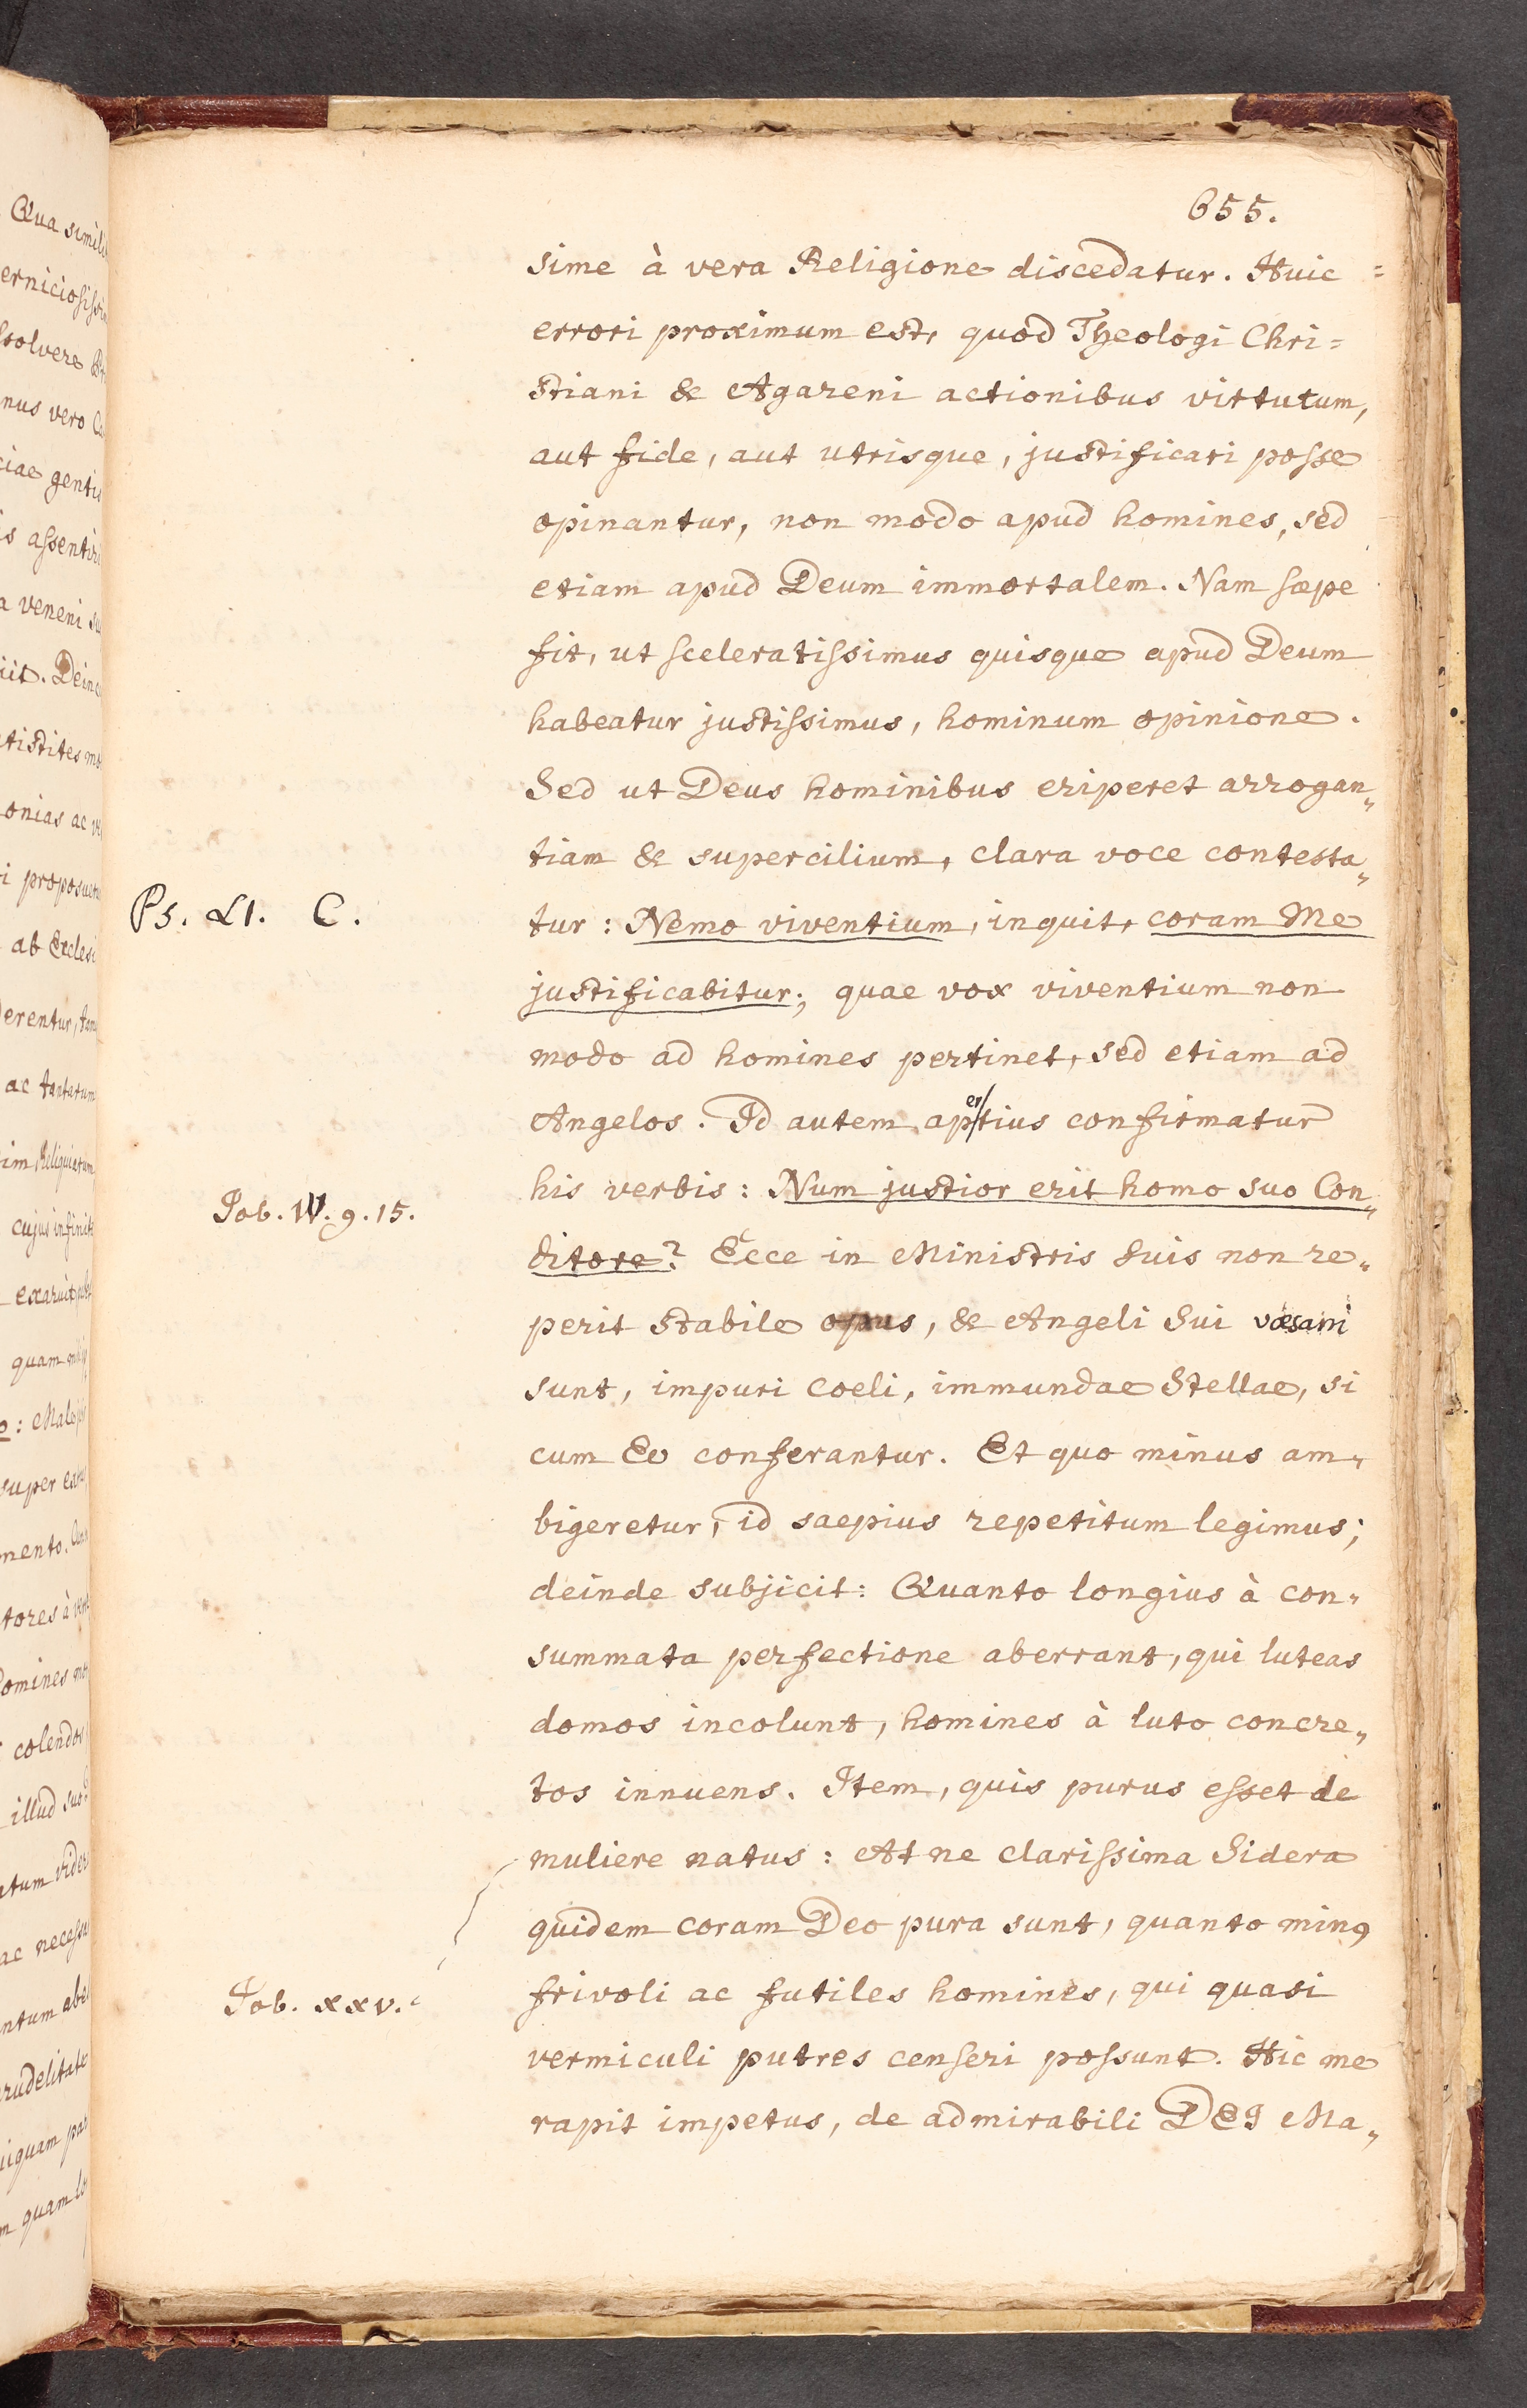 655.
sime à vera Religione discedatur. Huic =
errori proximum est, quod Theologi Chri=
stiani & Agareni actionibus virtutum,
aut fide, aut utrisque, justificari posse
opinantur, non modo apud homines, sed
etiam apud Deum immortalem. Nam sæpe
fit, ut sceleratissimus quisque apud Deum
habeatur justissimus, hominum opinione.
Sed ut Deus hominibus eriperet arrogan„
tiam & supercilium, clara voce contesta„
Ps. LI. C.
tur: Nemo viventium, inquit, coram Me
justificabitur; quae vox viventium non
modo ad homines pertinet, sed etiam ad
Angelos. Id autem apertius confirmatur
his verbis: Num justior erit homo suo Con„
Job. IV. 9. 15.
ditore? Ecce in Ministris Suis non re„
perit stabile opus, & Angeli Sui væsani
sunt, impuri coeli, immundae Stellae, si
cum Eo conferantur. Et quo minus am„
bigeretur, id saepius repetitum legimus;
deinde subjicit: Quanto longius à con„
summata perfectione aberrant, qui luteas
domos incolunt, homines à luto concre„
tos innuens. Item, quis purus esset de
muliere natus: At ne clarissima Sidera
quidem coram Deo pura sunt, quanto minꝯ
Job. XXV.
frivoli ac futiles homines, qui quasi
vermiculi putres censeri possunt. Hic me
rapit impetus, de admirabili DEI Ma„
Qua
solvere
nus vero
ciae
a veneni
onias ac
ab
ac
quam
super
mento.
tores à
colendos
illud
ac
quam